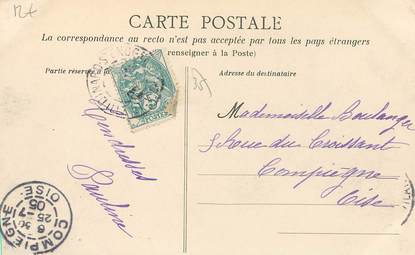 12+
CARTE POSTALE
La correspondance au recto n'est pas acceptée par tous les pays étrangers
(Se renseigner à la Poste)
Partie réservée à la
Adresse du destinataire
35
Tendresses
Pauline
Mademoiselle Boulanger
5 Rue du Croissant
Compiègne
Oise
POSTES
COMPIEGNE
OISE
6 30
25 -7
05